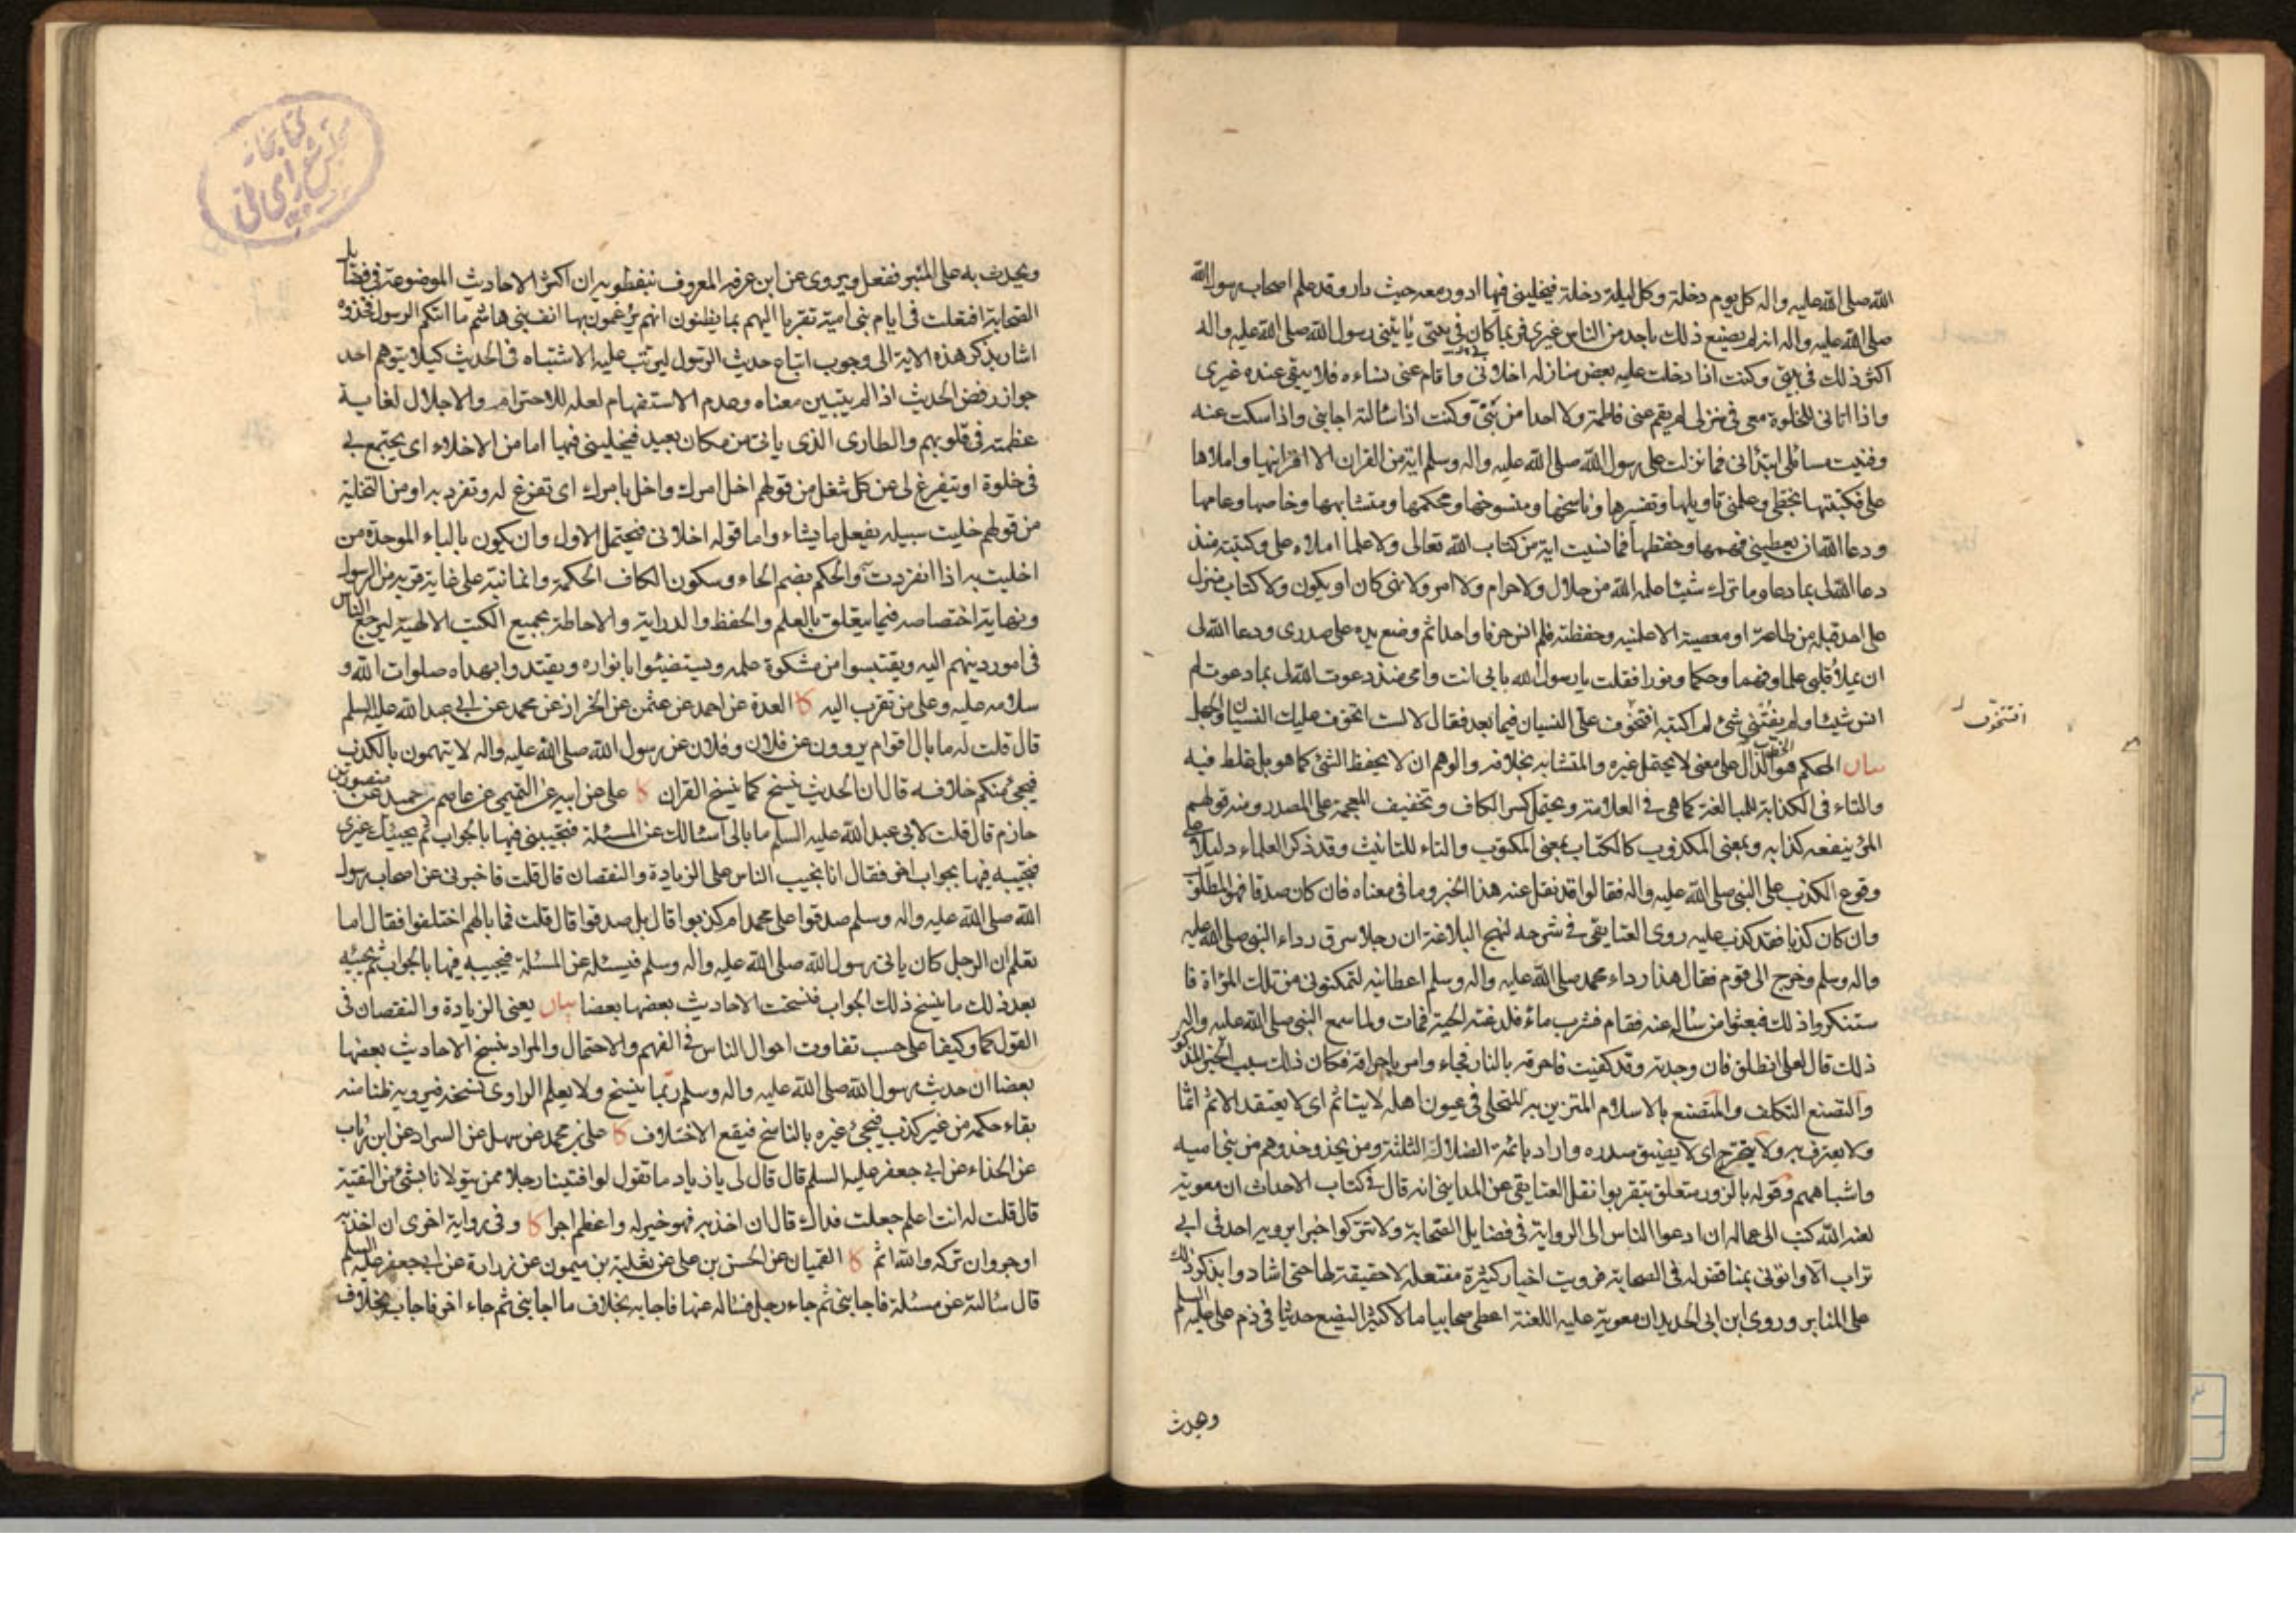 الله صلى الله عليه واله كل يوم دخلة وكل ليلة دخلة فيخليني فيها ادور معه حيث دار وقد علم اصحاب رسول الله
صلى الله عليه واله انه لم يصنع ذلك باحد من الناس غيري فربما كان في بيتي ياتيني رسول الله صلى الله عليه واله
اكثر ذلك في بيتي وكنت اذا دخلت عليه بعض منازله اخلاني واقام عني نساءه فلا يبقى عنده غيري
واذا اتاني للخلوة معي في منزلي لم يقم عني فاطمة ولا احدا من بَنيّ وكنت اذا سالته اجابني واذا سكت عنه
وفنيت مسائلي ابتدأني فما نزلت على رسول الله صلى الله عليه واله وسلم اية من القران الا اقرانيها واملاها
علي فكتبتها بخطي وعلمني تاويلها وتفسيرها وناسخها ومنسوخها ومحكمها ومتشابهها وخاصها وعامها
ودعا الله ان يعطيني فهمها وحفظها فما نسيت اية من كتاب الله تعالى ولا علما املاه علي وكتبته منذ
دعا الله لي بما دعا وما ترك شيئا علمه الله من حلال ولا حرام ولا امر ولا نهي كان او يكون ولا كتاب منزل
على احد قبله من طاعة او معصية الا علمنيه وحفظته فلم انس حرفا واحدا ثم وضع يده على صدري ودعا الله لي
ان يملأ قلبي علما وفهما وحكما ونورا فقلت يا رسول الله بابي انت وامي منذ دعوت الله لي بما دعوت لم
انس شيئا ولم يفتني شئ لم اكتبه افتخوف علي النسيان فيما بعد فقال لا لست اتخوف عليك النسيان والجهل
افتتخوف
بيان المحكم هو الدال على معنى لا يحتمل غيره والمتشابه بخلافه والوهم ان لا يحفظ الشئ كما هو بل غلط فيه
والتاء في الكذابة للمبالغة كما هي في العلامة ويحتمل كسر الكاف وتخفيف المعجمة على المصدر ومنه قولهم
المرء ينفعه كذابه وبمعنى المكذوب كالكتاب بمعنى المكتوب والتاء للتانيث وقد ذكر العلماء دليلا على
وقوع الكذب على النبي صلى الله عليه واله فقالوا قد نقل عنه هذا الخبر وما في معناه فان كان صدقا فهو المطلوب
وان كان كذبا فقد كذب عليه روى العتايقي في شرحه لنهج البلاغة ان رجلا سرق رداء النبي صلى الله عليه
واله وسلم وخرج الى قوم فقال هذا رداء محمد صلى الله عليه واله وسلم اعطانيه لتمكنوني من تلك المراة فا
ستنكروا ذلك فبعثوا من ساله عنه فقام فشرب ماءً فلدغته الحية فمات ولما سمع النبي صلى الله عليه واله
ذلك قال لعلي انطلق فان وجدته وقد كفيت فاحرقه بالنار فجاء وامر باحراقه فكان ذلك سبب الخبر المذكور
والتصنع التكلف والمتصنع بالاسلام المتزين به للتحلي في عيون اهله لا يتاثم اي لا يعتقد الاثم اثما
ولا يعترف به ولا يتحرج اي لا يضيق صدره واراد بائمة الضلال الثلثة ومن يحذو حذوهم من بني اميه
واشباههم وقوله بالزور متعلق بتقربوا نقل العتايقي عن المدايني انه قال في كتاب الاحداث ان معوية
لعنه الله كتب الى عماله ان ادعوا الناس الى الرواية في فضايل الصحابة ولا تتركوا خبرا يرويه احد في ابي
تراب الا واتوني بمناقض له في الصحابة فرويت اخبار كثيرة مفتعلة لا حقيقة لها حتى اشادوا بذكر ذلك
على المنابر وروى ابن ابي الحديد ان معوية عليه اللعنة اعطى صحابيا مالا كثيرا ليضع حديثا في ذم علي عليه السلم
ويحدث
ويحدث به على المنبر ففعل ويروى عن ابن عرفه المعروف بنفطويه ان اكثر الاحاديث الموضوعة في فضايل
الصحابة افتعلت في ايام بني امية تقربا اليهم بما يظنون انهم يرغمون بها انف بني هاشم ما اتكم الرسول فخذوه
اشار بذكر هذه الاية الى وجوب اتباع حديث الرسول ليترتب عليه الاشتباه في الحديث كيلا يتوهم احد
جواز رفض الحديث اذا لم يتبين معناه وعدم الاستفهام لعله للاحترام والاجلال لغاية
عظمته في قلوبهم والطارى الذي ياتي من مكان بعيد فيخليني فيها اما من الاخلاء اي يجتمع بي
في خلوة او يتفرغ لي عن كل شغل من قولهم اخل امرك واخل بامرك اي تفرغ له وتفرد به او من التخلية
من قولهم خليت سبيله يفعل ما يشاء واما قوله اخلاني فيحتمل الاول وان يكون بالباء الموحدة من
اخليت به اذا انفردت والحكم بضم الحاء وسكون الكاف الحكمة وانما نبه على غاية قربه من الرسول
ونهاية اختصاصه فيما يتعلق بالعلم والحفظ والدراية والاحاطة بجميع الكتب الالهية ليرجع الناس
في امور دينهم اليه ويقتبسوا من مشكوة علمه ويستضيئوا بانواره ويقتدوا بهداه صلوات الله و
سلامه عليه وعلى من تقرب اليه كا العدة عن احمد عن عثمن عن الخزاز عن محمد عن ابي عبد الله عليه السلم
قال قلت له ما بال اقوام يروون عن فلان وفلان عن رسول الله صلى الله عليه واله لا يتهمون بالكذب
فيجئ منكم خلافه قال ان الحديث ينسخ كما ينسخ القران كا علي عن ابيه عن التميمي عن عاصم بن حميد عن منصور بن
حازم قال قلت لابي عبد الله عليه السلم ما بالي اسالك عن المسئلة فتجيبني فيها بالجواب ثم يجيئك غيري
فتجيبه فيها بجواب اخر فقال انا نجيب الناس على الزيادة والنقصان قال قلت فاخبرني عن اصحاب رسول
الله صلى الله عليه واله وسلم صدقوا على محمد ام كذبوا قال بل صدقوا قال قلت فما بالهم اختلفوا فقال اما
تعلم ان الرجل كان ياتي رسول الله صلى الله عليه واله وسلم فيسئله عن المسئلة فيجيبه فيها بالجواب ثم يجيبه
بعد ذلك ما ينسخ ذلك الجواب فنسخت الاحاديث بعضها بعضا بيان يعني الزيادة والنقصان في
القول كما وكيفا على حسب تفاوت احوال الناس في الفهم والاحتمال والمراد بنسخ الاحاديث بعضها
بعضا ان حديث رسول الله صلى الله عليه واله وسلم ربما ينسخ ولا يعلم الراوي نسخه فيرويه ظنا منه
بقاء حكمه من غير كذب فيجئ غيره بالناسخ فيقع الاختلاف كا علي بن محمد عن سهل عن السراد عن ابن رئاب
عن الحذاء عن ابي جعفر عليه السلم قال قال لي يا زياد ما تقول لو افتينا رجلا ممن يتولانا بشئ من التقية
قال قلت له انت اعلم جعلت فداك قال ان اخذ به فهو خير له واعظم اجرا كا وفي رواية اخرى ان اخذ به
اوجر وان تركه والله اثم كا القميان عن الحسن بن علي عن ثعلبة بن ميمون عن زرارة عن ابي جعفر عليه السلم
قال سالته عن مسئلة فاجابني ثم جاءه رجل فساله عنها فاجابه بخلاف ما اجابني ثم جاء اخر فاجاب بخلاف
كتابخانه
مجلس شوراى ملى